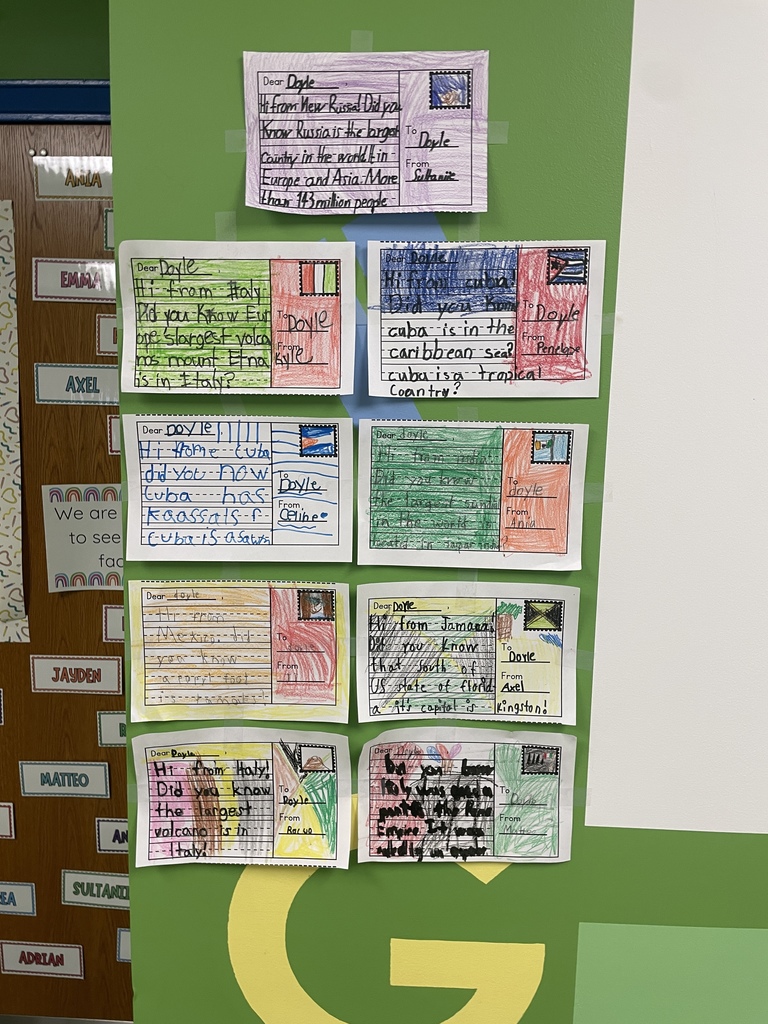 Dear Doyle
Hi from New Russia! Did you
Know Russia is the largest
country in the world It in
Europe and Asia. More
than 143 million people
To
Doyle
From
Sultanie
Dear Doyle
Hi from Italy
Did you Know Eur
ope's largest volca
nos mount Etna
is in Italy?
To
Doyle
From
Kyle
Dear Doyle
Hi from cuba!
Did you Know
cuba is in the
caribbean sea?
cuba is a tropical
Coantry?
To
Doyle
From
Penelope
Dear Doyle
Hi frome Cuba
did you now
Cuba has
Cuba is
To
Doyle
From
Celine
Dear doyle
Hi from
Did you know
the largest
in the world is
in
To
doyle
From
Ania
Dear doyle
Hi from
Mexico! did
you know
To
From
Dear Doyle
Hi from Jamaca!
Did you Know
that south of
US state of florid
a it's capital is Kingston!
To
Doyle
From
Axel
Dear Doyle
Hi from Italy!
Did you know
the largest
volcano is in
Italy!
To
Doyle
From
Dear
you know
Italy was once a
the
Empire. It was
To
From
ANIA
EMMA
AXEL
We are
to see
fac
JAYDEN
MATTEO
AN
SULTANI
EA
ADRIAN
G